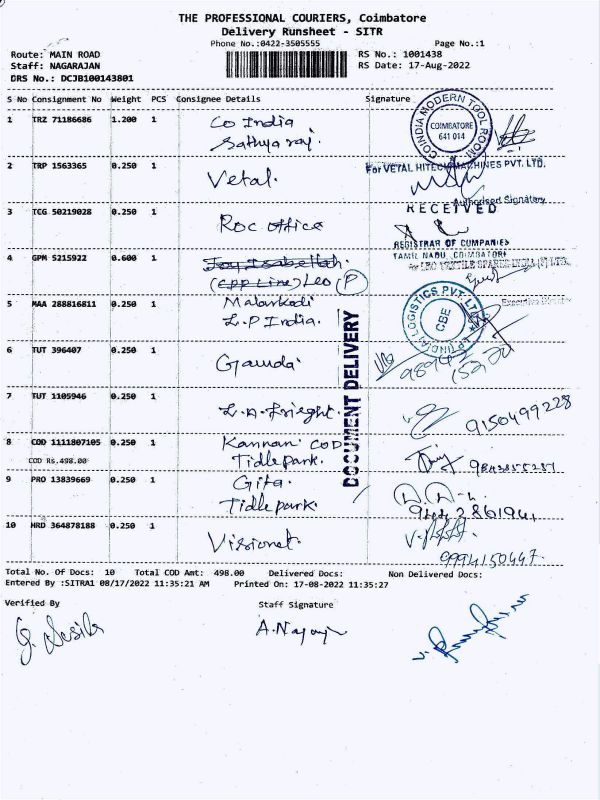 THE PROFESSIONAL COURIERS, Coimbatore
Delivery Runsheet - SITR
Phone No.:0422-3505555 Page No.:1
Route: MAIN ROAD RS No.: 1001438
Staff: NAGARAJAN RS Date: 17-Aug-2022
DRS No.: DCJB100143801
S No Consignment No Weight PCS Consignee Details Signature
1 TRZ 71186686 1.200 1 Co India
Sathya raj.
COINDIA MODERN TOOL ROOM
COIMBATORE
641 014
2 TRP 1563365 0.250 1 Vetal.
For VETAL HITECH MACHINES PVT. LTD.
Authorised Signatory
3 TCG 50219028 0.250 1 ROC office
RECEIVED
REGISTRAR OF COMPANIES
TAMIL NADU, COIMBATORE
4 GPM 5215922 0.600 1 Joy Isabellah.
(EPP Line) Leo (P)
5 MAA 288816811 0.250 1 Malarkodi
L.P India.
LP (INDIA) LOGISTICS PVT. LTD
CBE
6 TUT 396407 0.250 1
7 TUT 1105946 0.250 1
9150499228
8 COD 1111807105 0.250 1 Kannan COD
COD Rs.498.00 Tidle park.
9 PRO 13839669 0.250 1 Gita.
Tidle park.
10 HRD 364878188 0.250 1 Visionet.
9994150447.
DOCUMENT DELIVERY
Total No. Of Docs: 10 Total COD Amt: 498.00 Delivered Docs: Non Delivered Docs:
Entered By :SITRA1 08/17/2022 11:35:21 AM Printed On: 17-08-2022 11:35:27
Verified By Staff Signature
G. Susila